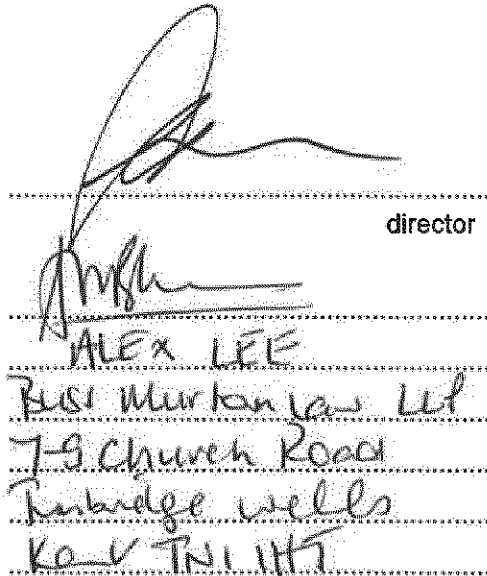 director
ALEX LEE
Buss Murton Law LLP
7-9 Church Road
Tunbridge Wells
Kent TN1 1HT